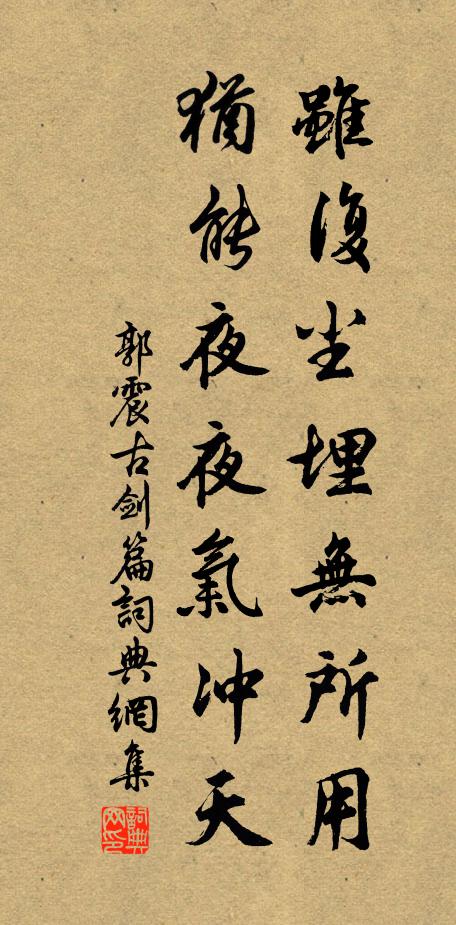 雖復尘埋無所用
猶能夜夜氣沖天
郭震古劍篇詞典網集
詞典网印